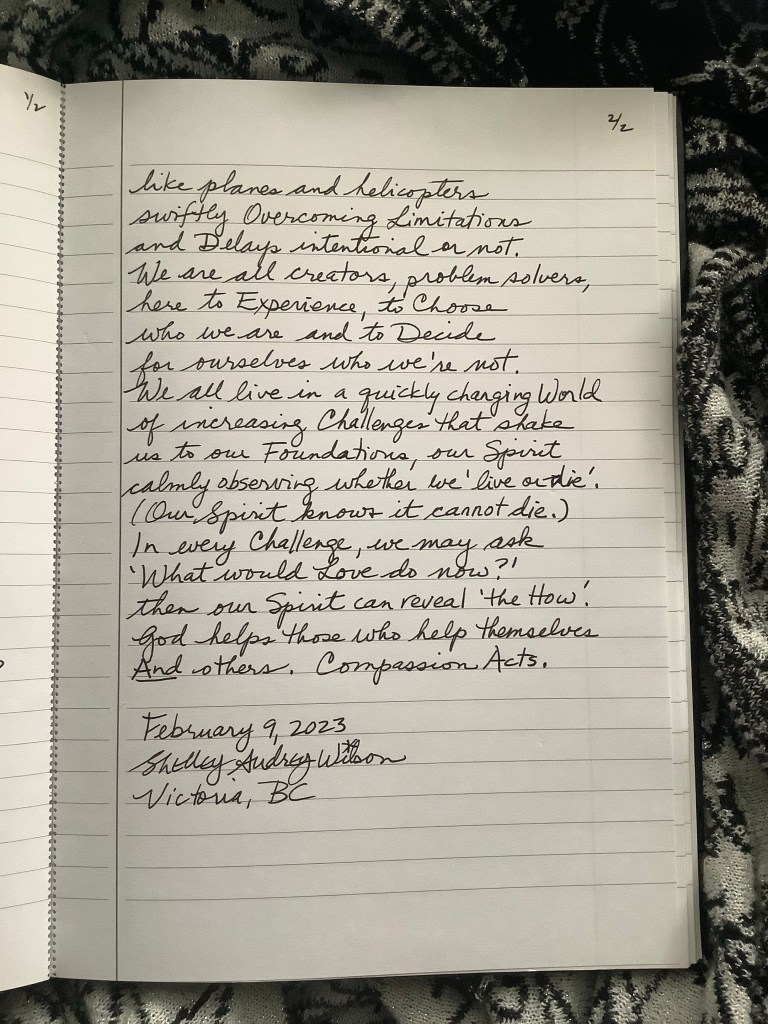 1/2
2/2
like planes and helicopters
swiftly Overcoming Limitations
and Delays intentional or not.
We are all creators, problem solvers,
here to Experience, to Choose
who we are and to Decide
for ourselves who we're not.
We all live in a quickly changing World
of increasing Challenges that shake
us to our Foundations, our Spirit
calmly observing whether we 'live or die'.
(Our Spirit knows it cannot die.)
In every Challenge, we may ask
'What would Love do now?'
then our Spirit can reveal 'the How'.
God helps those who help themselves
And others. Compassion Acts.
February 9, 2023
Shelley Audrey Wilson
Victoria, BC